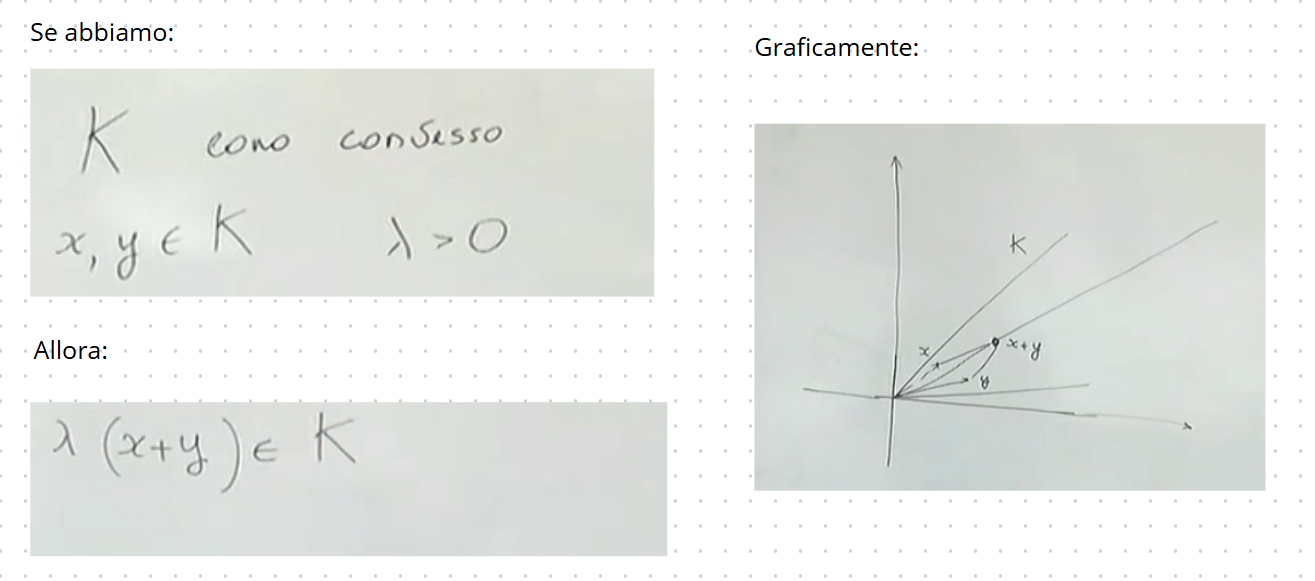 Se abbiamo:
K cono convesso
x, y ∈ K λ > 0
Allora:
λ (x+y) ∈ K
Graficamente:
K
x
x+y
y